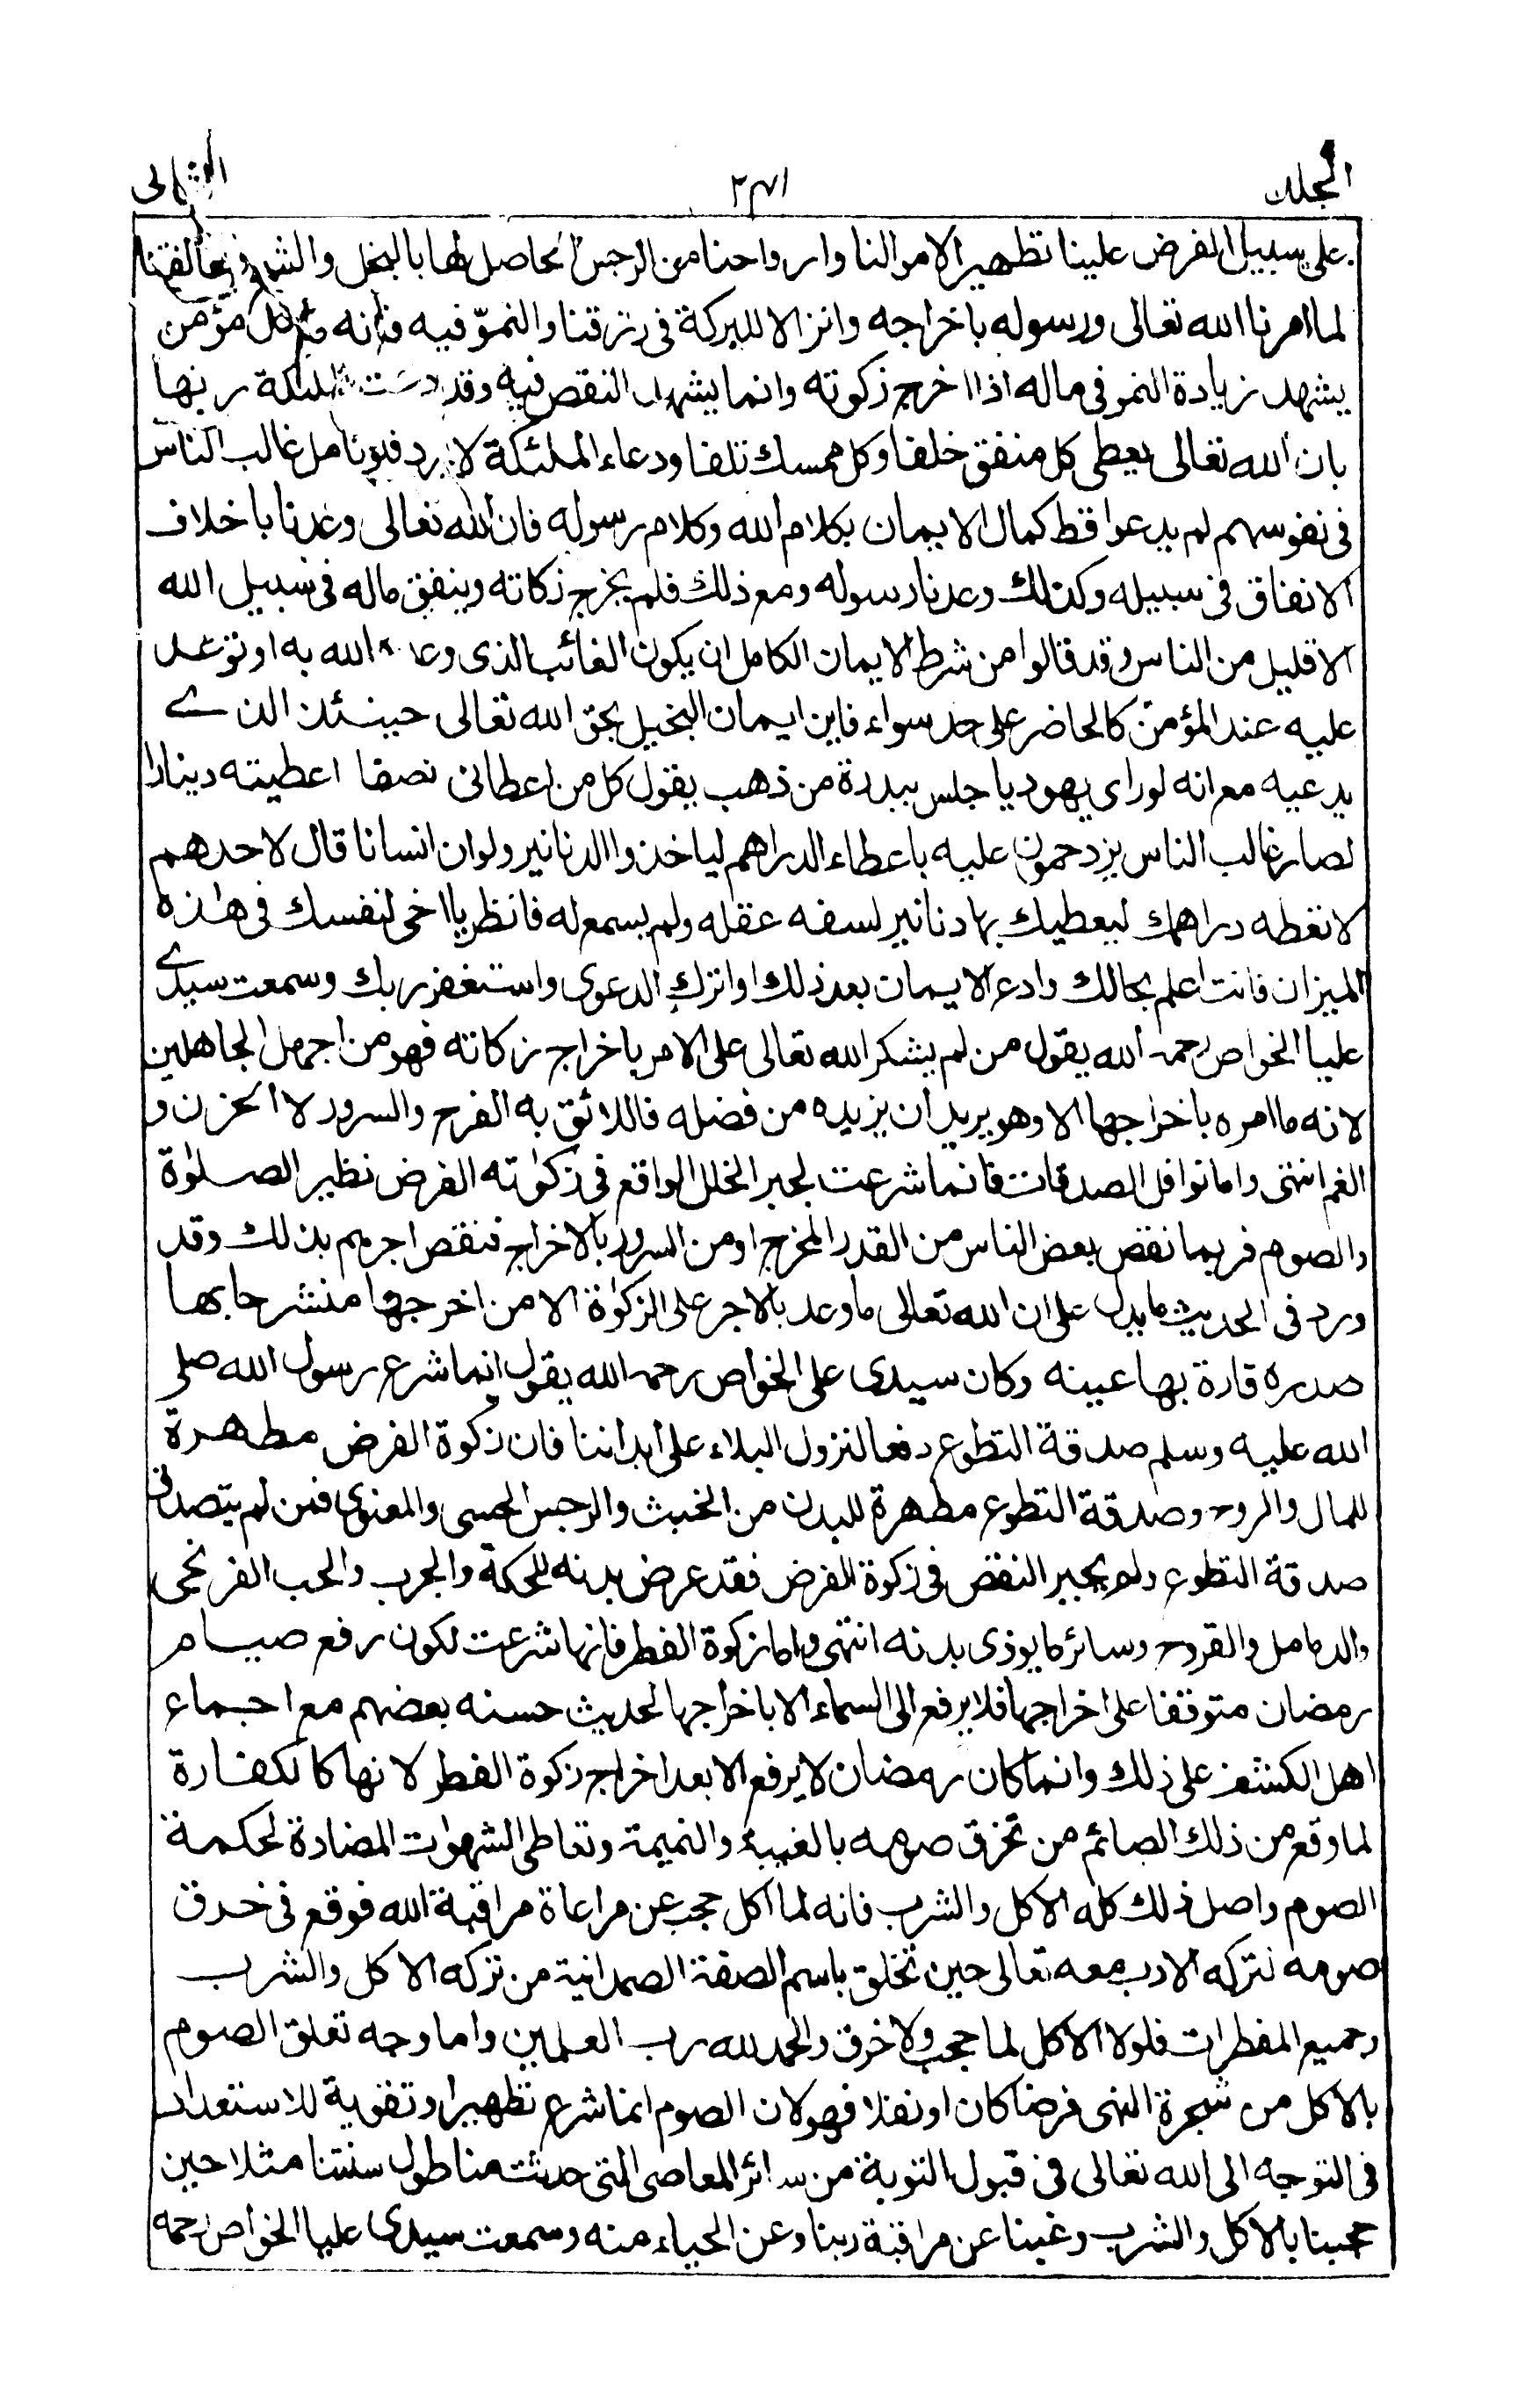 المجلد ٢٣١ الثانى
على سبيل الفرض علينا تطهيرا لاموالنا وارواحنا من الرجس الحاصل لها بالبخل والشح وبمخالفتنا
لما امرنا الله تعالى ورسوله باخراجه وانزالا للبركة فى رزقنا والنموّ فيه فانه كل مؤمن
يشهد زيادة النمو فى ماله اذا اخرج زكوته وانما يشهد النقص فيه وقد الملئكة ربها
بان الله تعالى يعطى كل منفق خلفا وكل ممسك تلفا ودعاء الملئكة لا يرد فلو تامل غالب الناس
فى نفوسهم لم يدعوا قط كمال الايمان بكلام الله وكلام رسوله فان الله تعالى وعدنا باخلاف
الانفاق فى سبيله وكذلك وعدنا رسوله ومع ذلك فلم يخرج زكاته وينفق ماله فى سبيل الله
الا قليل من الناس وقد قالوا من شرط الايمان الكامل ان يكون الغائب الذى وعد الله به او توعد
عليه عند المؤمن كالحاضر على حد سواء فاين ايمان البخيل بحق الله تعالى حينئذ الذے
يدعيه مع انه لو راى يهوديا جلس ببدرة من ذهب يقول كل من اعطانى نصفا اعطيته دينارا
لصار غالب الناس يزدحمون عليه باعطاء الدراهم لياخذوا الدنانير ولو ان انسانا قال لاحدهم
لا تعطه دراهمك ليعطيك بها دنانير لسفه عقله ولم يسمع له فانظر يا اخى لنفسك فى هذه
الميزان فانت اعلم بحالك وادع الايمان بعد ذلك او اترك الدعوى واستغفر ربك وسمعت سيدے
عليا الخواص رحمہ الله يقول من لم يشكر الله تعالى على الامر باخراج زكاته فهو من اجهل الجاهلين
لانه ما امره باخراجها الا وهو يريد ان يزيده من فضله فاللائق به الفرح والسرور لا الحزن و
الغم انتهى واما نوافل الصدقات فانما شرعت لجبر الخلل الواقع فى زكوٰته الفرض نظير الصلوٰة
والصوم فربما نقص بعض الناس من القدر المخرج او من السرور بالاخراج فنقص اجرهم بذلك وقد
ورد فى الحديث ما يدل على ان الله تعالى ما وعد بالاجر على الزكوٰة الا من اخرجها منشرحا بها
صدره قارة بها عينه وكان سيدى على الخواص رحمہ الله يقول انما شرع رسول الله صلى
الله عليه وسلم صدقة التطوع دفعا لنزول البلاء على ابداننا فان زكوة الفرض مطهرة
للمال والروح وصدقة التطوع مطهرة للبدن من الخبث والرجس الحسى والمعنوى فمن لم يتصدق
صدقة التطوع ولم يجبر النقص فى زكوة الفرض فقد عرض بدنه للحكة والجرب والحب الفرنجى
والدمامل والقروح وسائر ما يوذى بدنه انتهى واما زكوة الفطر فانها شرعت لكون رفع صيام
رمضان متوقفا على اخراجها فلا يرفع الى السماء الا باخراجها لحديث حسنه بعضهم مع اجماع
اهل الكشف على ذلك وانما كان رمضان لا يرفع الا بعد اخراج زكوة الفطر لانها كالكفارة
لما وقع من ذلك الصائم من تخرق صومه بالغيبة والنميمة وتعاطى الشهوات المضادة لحكمة
الصوم واصل ذلك كله الاكل والشرب فانه لما اكل حجب عن مراعاة مراقبة الله فوقع فى خرق
صومه لتركه الادب معه تعالى حين تخلق باسم الصفة الصمدانية من تركه الاكل والشرب
وجميع المفطرات فلولا الاكل لما حجب ولا خرق والحمد لله رب العلمين واما وجه تعلق الصوم
بالاكل من شجرة النهى فرضا كان او نفلا فهو لان الصوم انما شرع تطهيرا وتقوية للاستعداد
فى التوجه الى الله تعالى فى قبول التوبة من سائر المعاصى التى حدثت منا طول سنتنا مثلا حين
حجبنا بالاكل والشرب وغبنا عن مراقبة ربنا وعن الحياء منه وسمعت سيدى عليا الخواص رحمه